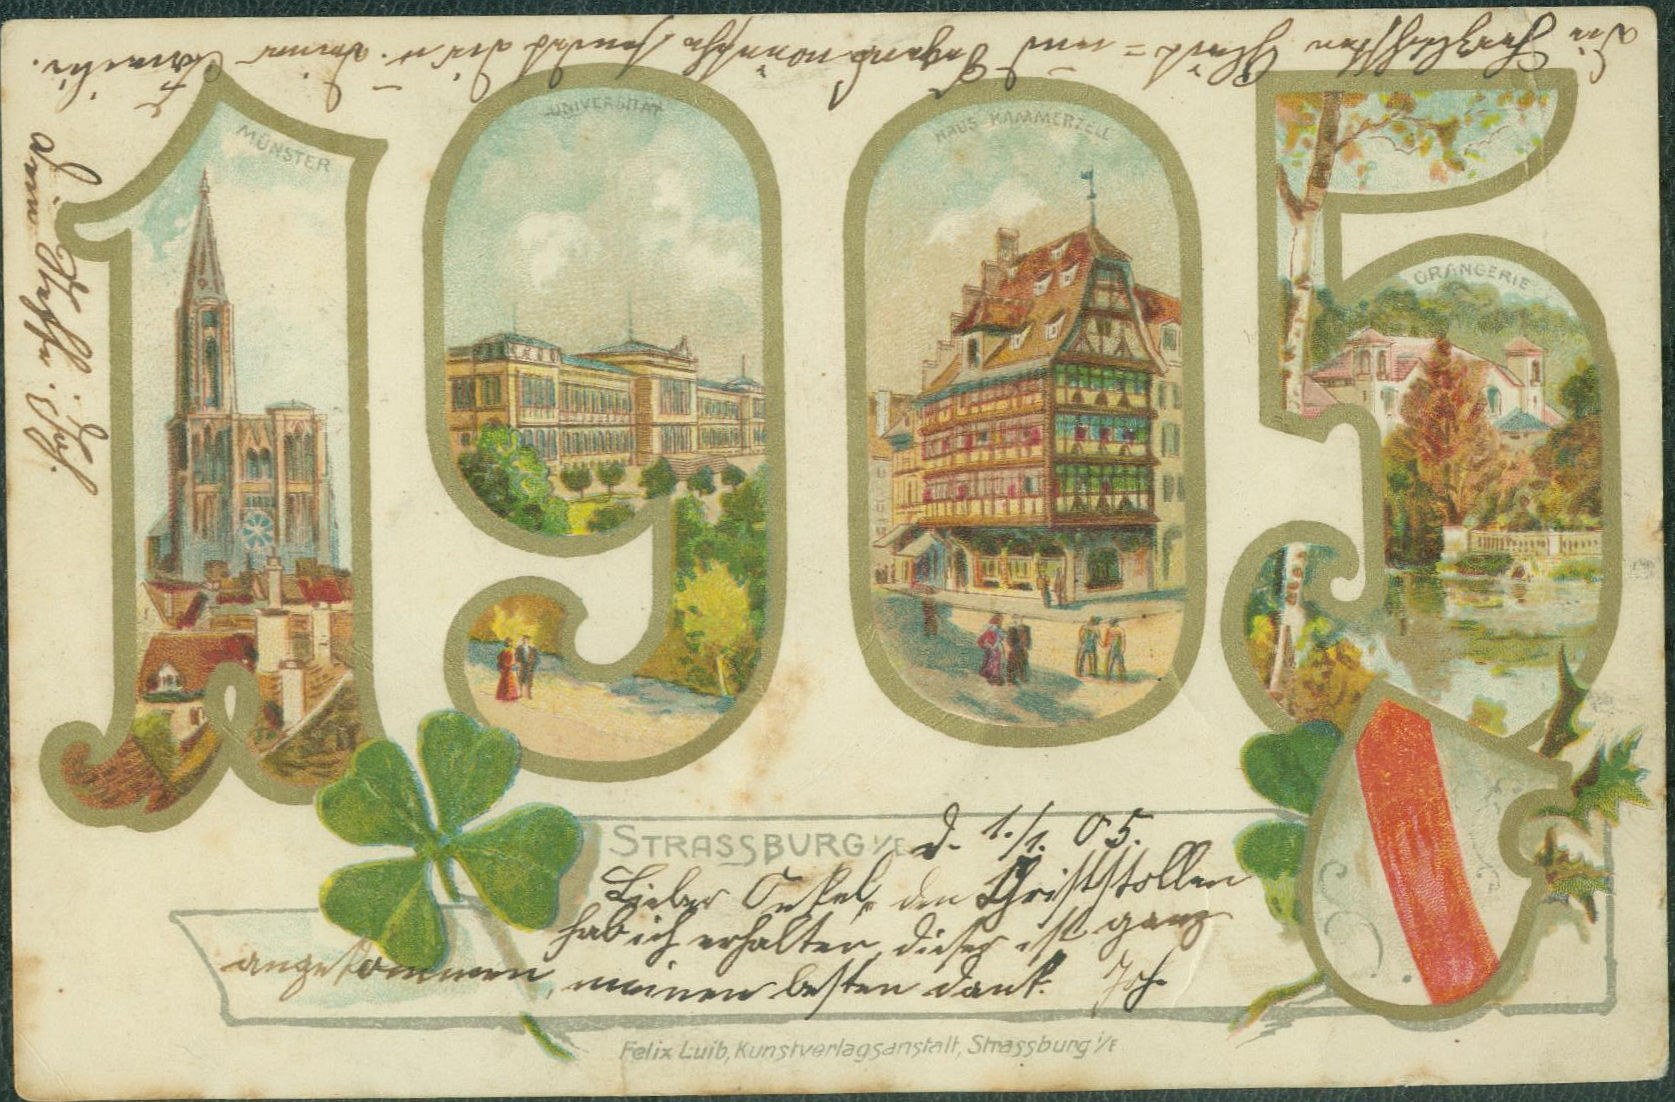 die herzlichsten Glück = und Segenswünsche sendet dir u. deiner Familie.
dein Neffe. Jos.
MÜNSTER
UNIVERSITÄT
HAUS KAMMERZELL
ORANGERIE
STRASSBURG i/E d. 1./1. 05.
Lieber Onkel, den Christstollen
hab ich erhalten, dieser ist ganz
angekommen, meinen besten dank. Jos.
Felix Luib, Kunstverlagsanstalt, Strassburg i/E